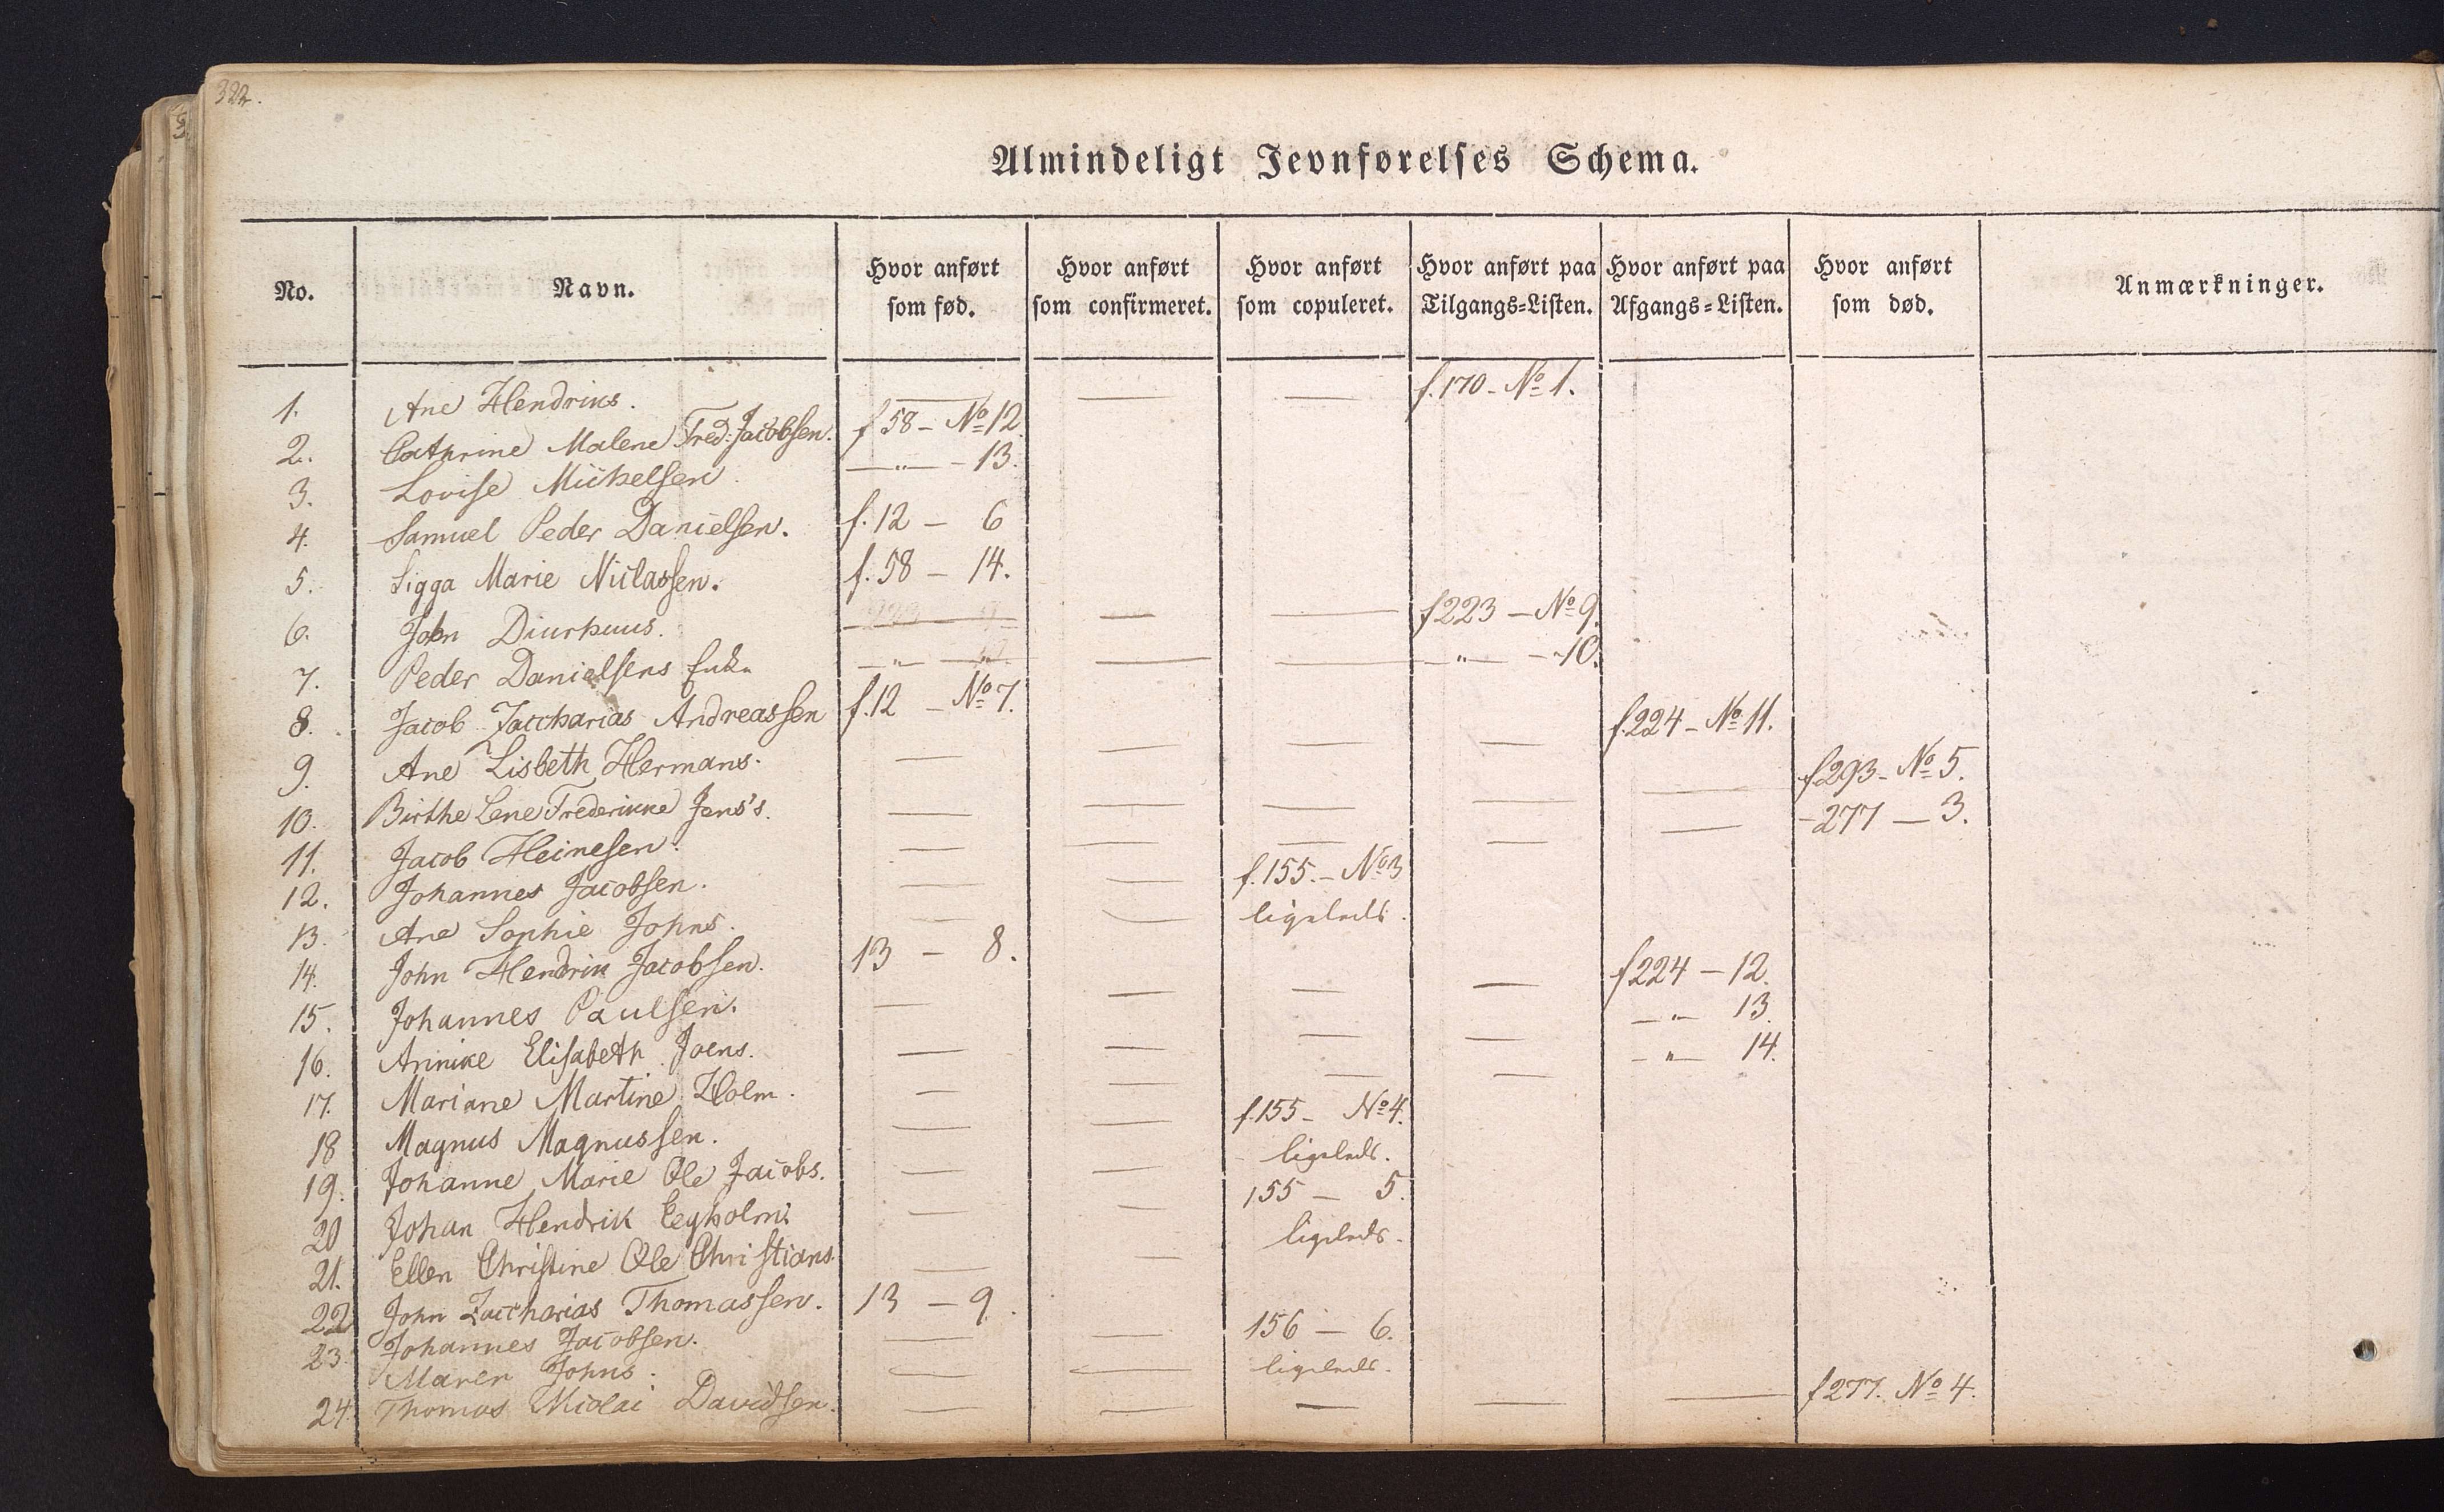 322.
Almindeligt Jevnførelses Schema.
No. Navn. Hvor anført som fød. Hvor anført som confirmeret. Hvor anført som copuleret. Hvor anført paa Tilgangs=Listen. Hvor anført paa Afgangs=Listen. Hvor anført som død. Anmærkninger.
1. Ane Hendriks. — — — f. 170 - No 1.
2. Cathrine Malene Fred: Jacobsen. f 58 - No 12
3. Lovise Mickelsen —„— - 13.
4. Samuel Peder Danielsen. f. 12 - 6
5. Sigga Marie Niclassen. f. 58 - 14.
6. John Diurhuus. — — f 223 - No 9.
7. Peder Danielsens Enke —„— — — —„— - 10.
8. Jacob Zaccharias Andreassen f. 12 - No 7. f. 224 - No 11.
9. Ane Lisbeth Hermans. — — — — — f 293 - No 5.
10. Birthe Lene Frederikke Jens's. — — — — — - 277 - 3.
11. Jacob Heinesen. — — — —
12. Johannes Jacobsen. — — f. 155. - No 3
13. Ane Sophie Johns. — — ligeleds.
14. John Hendrik Jacobsen. 13 - 8. f 224 - 12.
15. Johannes Paulsen. — — — — -„- 13.
16. Annike Elisabeth Joens. — — — — -„- 14.
17. Mariane Martine Holm. — — — —
18 Magnus Magnussen. — — f. 155 - No 4.
19. Johanne Marie Ole Jacobs. — — ligeleds.
20 Johan Hendrik Eegholm. — — 155 - 5.
21. Ellen Christine Ole Christians. — — ligeleds.
22 John Zaccharias Thomassen. 13 - 9.
23. Johannes Jacobsen. — — 156 - 6.
Maren Johns. — — ligeleds.
24. Thomas Nicolai Davidsen. — — — — — f 277. No 4.